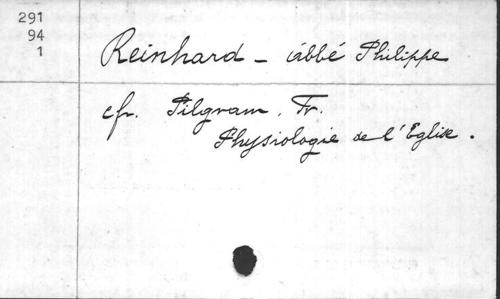 291
94
1
Reinhard - abbé Philippe
cfr. Pilgram, Fr.
Physiologie de l'Eglise.